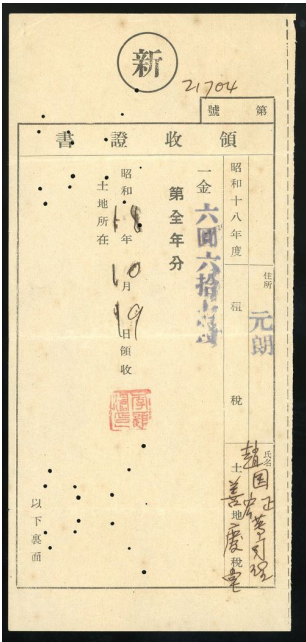 新
21704
第 號
領收證書
昭和十八年度
租稅
土地稅
住所
元朗
氏名
趙国正
善慶堂
一金 六圓六拾
第全年分
昭和18年10月19日領收
土地所在
以下裏面